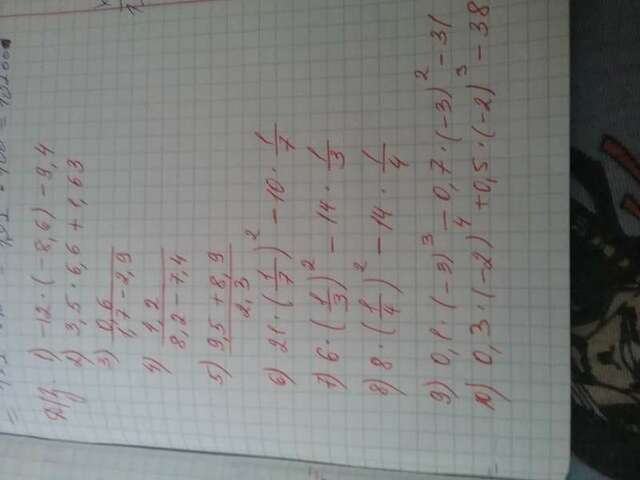 Д/З. 1) -12 · (-8,6) - 9,4
2) 3,5 · 6,6 + 1,63
3) 0,6 / 1,7 - 2,9
4) 1,2 / 8,2 - 7,4
5) 9,5 + 8,9 / 2,3
6) 21 · (1/7)² - 10 · 1/7
7) 6 · (1/3)² - 14 · 1/3
8) 8 · (1/4)² - 14 · 1/4
9) 0,1 · (-3)³ - 0,7 · (-3)² - 31
10) 0,3 · (-2)⁴ + 0,5 · (-2)³ - 38